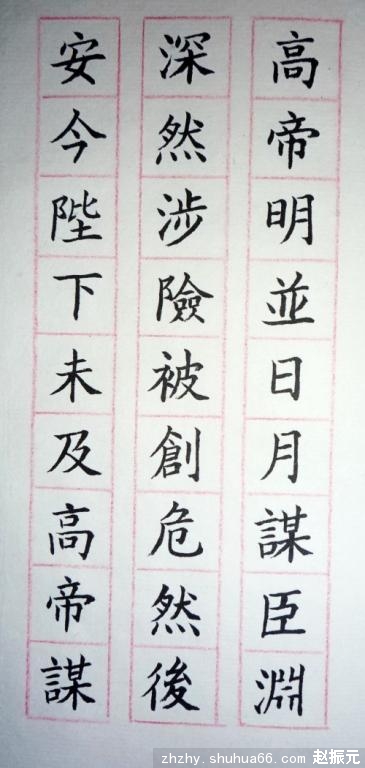 高帝明並日月謀臣淵
深然涉險被創危然後
安今陛下未及高帝謀
zhzhy.shuhua66.com 赵振元